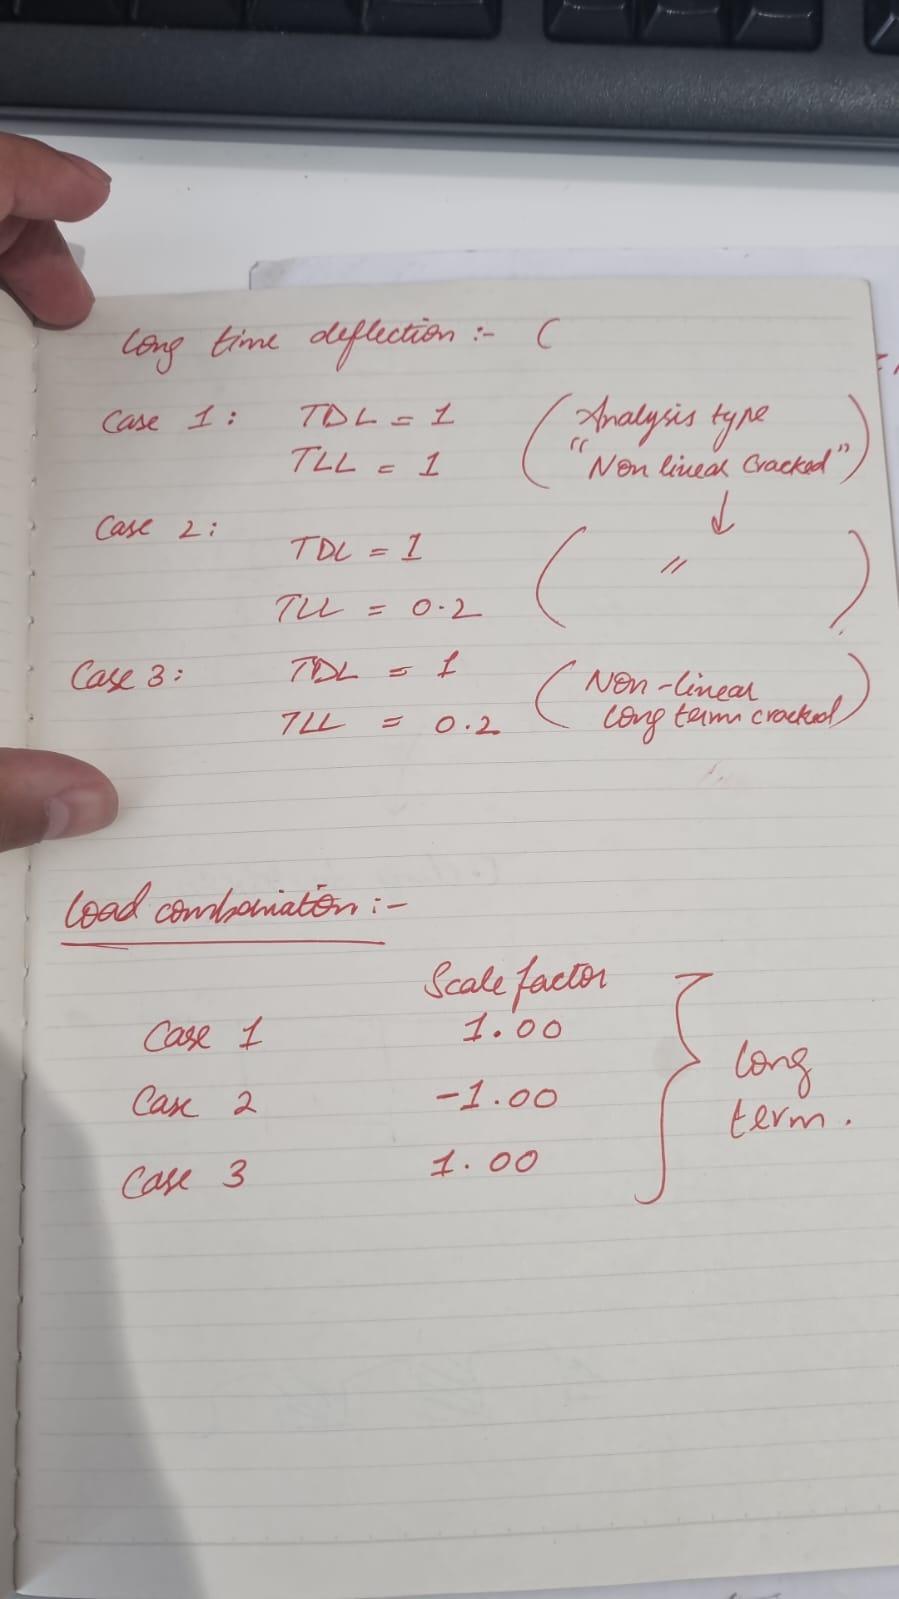 Long time deflection :- (
Case 1: TDL = 1 (Analysis type
TLL = 1 "Non linear Cracked")
Case 2:
TDL = 1 ( " )
TLL = 0.2
Case 3: TDL = 1 (Non-linear
TLL = 0.2 long term cracked)
Load combination :-
Scale factor
Case 1 1.00
Case 2 -1.00 } long
term.
Case 3 1.00